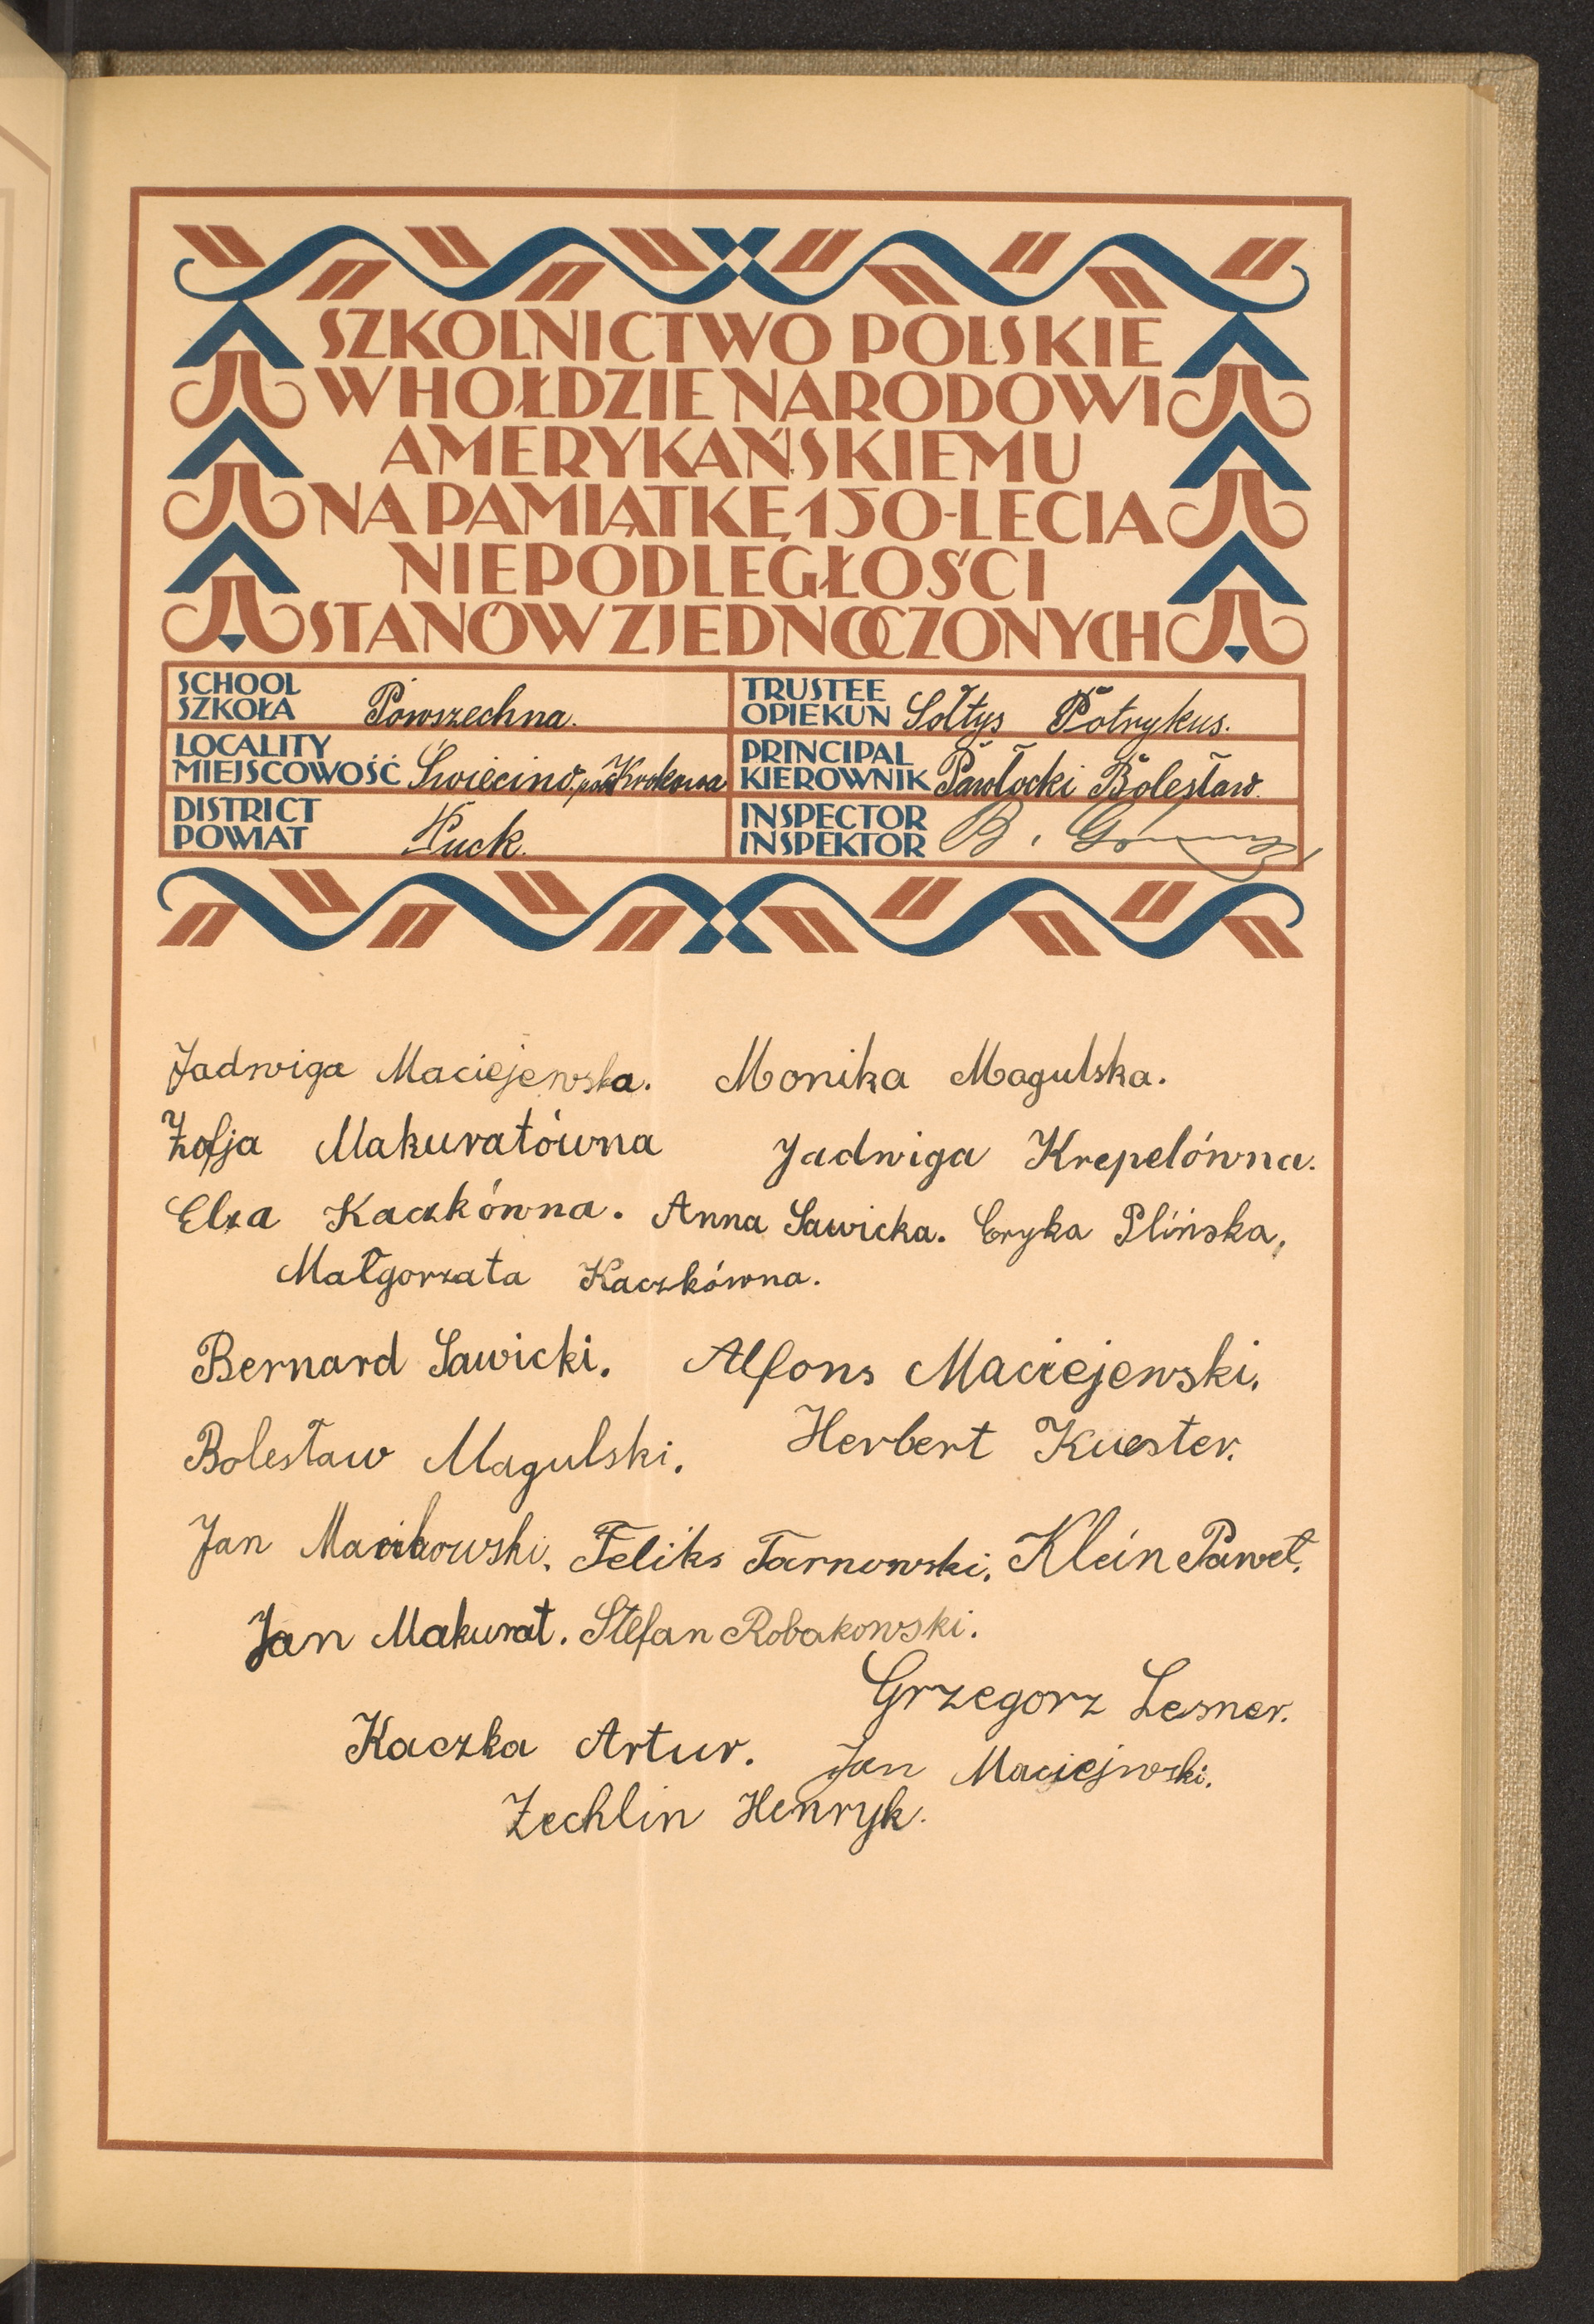 SZKOLNICTWO POLSKIE
W HOŁDZIE NARODOWI
AMERYKAŃSKIEMU
NA PAMIĄTKĘ 150-LECIA
NIEPODLEGŁOŚCI
STANÓW ZJEDNOCZONYCH
SCHOOL
SZKOŁA Powszechna.
TRUSTEE
OPIEKUN Sołtys Potrykus.
LOCALITY
MIEJSCOWOŚĆ Świecino, Krokowa
PRINCIPAL
KIEROWNIK Pawłocki Bolesław.
DISTRICT
POWIAT Puck.
INSPECTOR
INSPEKTOR B.
Jadwiga Maciejewska. Monika Magulska.
Zofja Makuratówna Jadwiga Krepelówna.
Elza Kaczkówna. Anna Sawicka. Eryka Plińska,
Małgorzata Kaczkówna.
Bernard Sawicki. Alfons Maciejewski.
Bolesław Magulski. Herbert Kuester.
Jan Feliks Tarnowski. Klein Paweł.
Jan Makurat. Stefan Robakowski.
Grzegorz Lesner.
Kaczka Artur. Jan Maciejwski.
Zechlin Henryk.